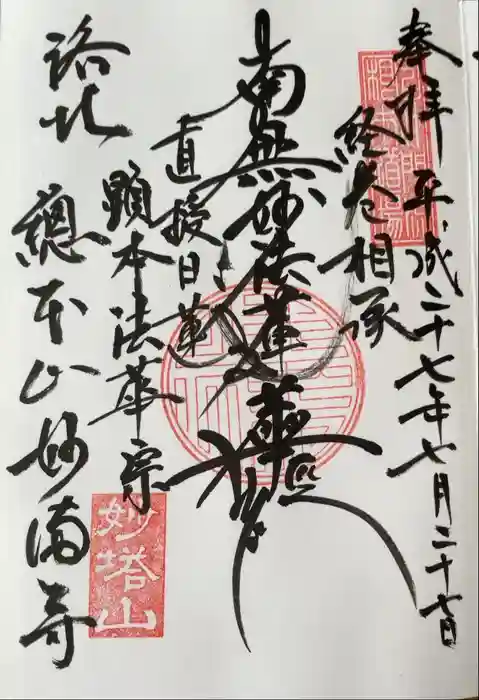 奉拝 平成二十七年七月二十七日
経巻相承
南無妙法蓮華経
直授日蓮
顕本法華宗
洛北
總本山妙満寺
妙塔山